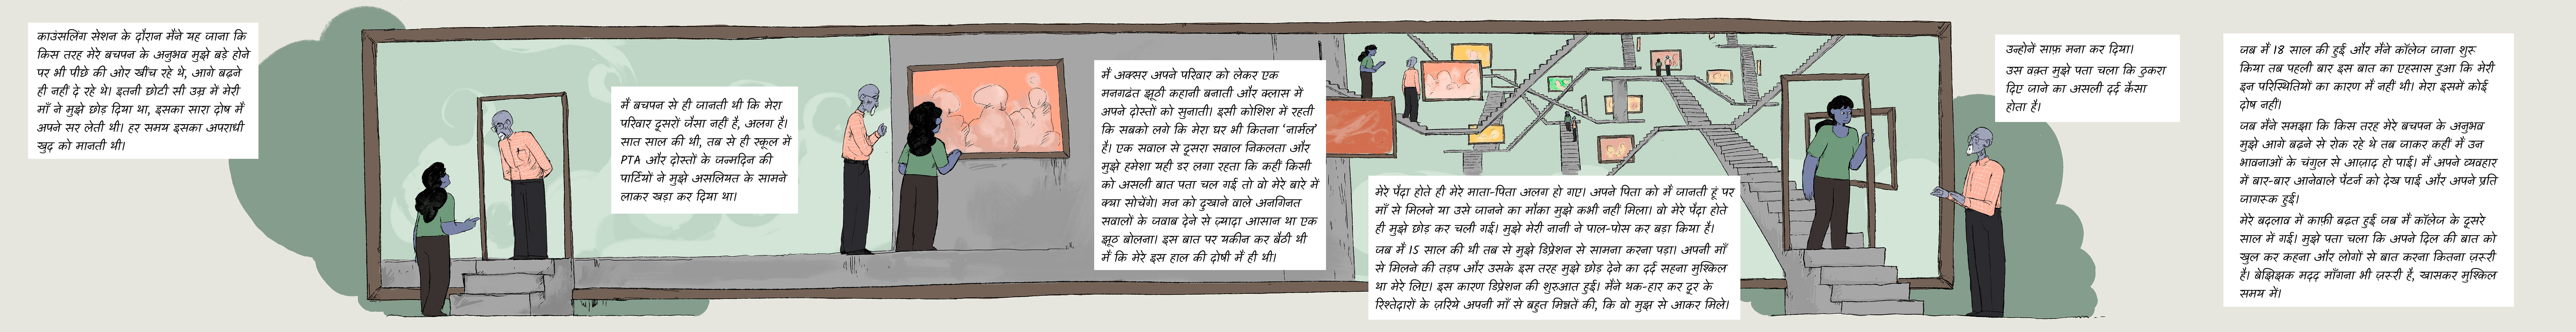 काउंसलिंग सेशन के दौरान मैंने यह जाना कि
किस तरह मेरे बचपन के अनुभव मुझे बड़े होने
पर भी पीछे की ओर खींच रहे थे, आगे बढ़ने
ही नहीं दे रहे थे। इतनी छोटी सी उम्र में मेरी
माँ ने मुझे छोड़ दिया था, इसका सारा दोष मैं
अपने सर लेती थी। हर समय इसका अपराधी
खुद को मानती थी।
मैं बचपन से ही जानती थी कि मेरा
परिवार दूसरों जैसा नहीं है, अलग है।
सात साल की थी, तब से ही स्कूल में
PTA और दोस्तों के जन्मदिन की
पार्टियों ने मुझे असलियत के सामने
लाकर खड़ा कर दिया था।
मैं अक्सर अपने परिवार को लेकर एक
मनगढंत झूठी कहानी बनाती और क्लास में
अपने दोस्तों को सुनाती। इसी कोशिश में रहती
कि सबको लगे कि मेरा घर भी कितना ‘नार्मल’
है। एक सवाल से दूसरा सवाल निकलता और
मुझे हमेशा यही डर लगा रहता कि कहीं किसी
को असली बात पता चल गई तो वो मेरे बारे में
क्या सोचेंगे। मन को दुखाने वाले अनगिनत
सवालों के जवाब देने से ज़्यादा आसान था एक
झूठ बोलना। इस बात पर यकीन कर बैठी थी
मैं कि मेरे इस हाल की दोषी मैं ही थी।
मेरे पैदा होते ही मेरे माता-पिता अलग हो गए। अपने पिता को मैं जानती हूं पर
माँ से मिलने या उसे जानने का मौका मुझे कभी नहीं मिला। वो मेरे पैदा होते
ही मुझे छोड़ कर चली गई। मुझे मेरी नानी ने पाल-पोस कर बड़ा किया है।
जब मैं 15 साल की थी तब से मुझे डिप्रेशन से सामना करना पड़ा। अपनी माँ
से मिलने की तड़प और उसके इस तरह मुझे छोड़ देने का दर्द सहना मुश्किल
था मेरे लिए। इस कारण डिप्रेशन की शुरुआत हुई। मैंने थक-हार कर दूर के
रिश्तेदारों के ज़रिये अपनी माँ से बहुत मिन्नतें की, कि वो मुझ से आकर मिले।
उन्होनें साफ़ मना कर दिया।
उस वक़्त मुझे पता चला कि ठुकरा
दिए जाने का असली दर्द कैसा
होता है।
जब मैं 18 साल की हुई और मैंने कॉलेज जाना शुरू
किया तब पहली बार इस बात का एहसास हुआ कि मेरी
इन परिस्थितियों का कारण मैं नहीं थी। मेरा इसमें कोई
दोष नहीं।
जब मैंने समझा कि किस तरह मेरे बचपन के अनुभव
मुझे आगे बढ़ने से रोक रहे थे तब जाकर कहीं मैं उन
भावनाओं के चंगुल से आज़ाद हो पाई। मैं अपने व्यवहार
में बार-बार आनेवाले पैटर्न को देख पाई और अपने प्रति
जागरूक हुई।
मेरे बदलाव में काफ़ी बढ़त हुई जब मैं कॉलेज के दूसरे
साल में गई। मुझे पता चला कि अपने दिल की बात को
खुल कर कहना और लोगों से बात करना कितना ज़रूरी
है। बेझिझक मदद माँगना भी ज़रूरी है, खासकर मुश्किल
समय में।